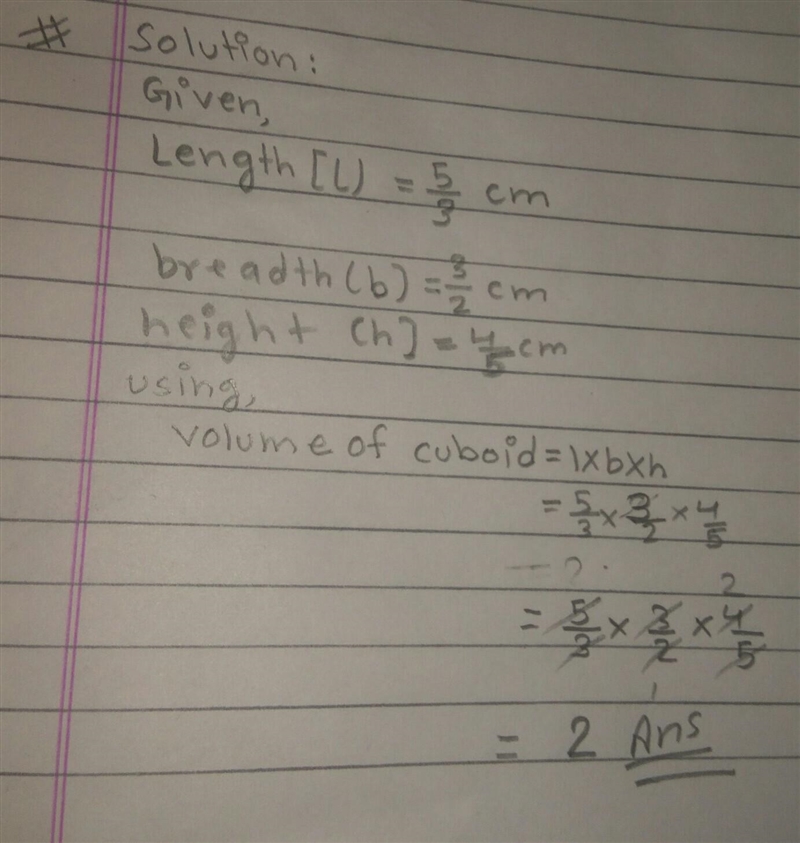 # Solution:
Given,
Length [l) = 5/3 cm
breadth (b) = 3/2 cm
height (h] = 4/5 cm
using,
volume of cuboid = l×b×h
= 5/3 × 3/2 × 4/5
2
= 5/3 × 3/2 × 4/5
1
= 2 Ans